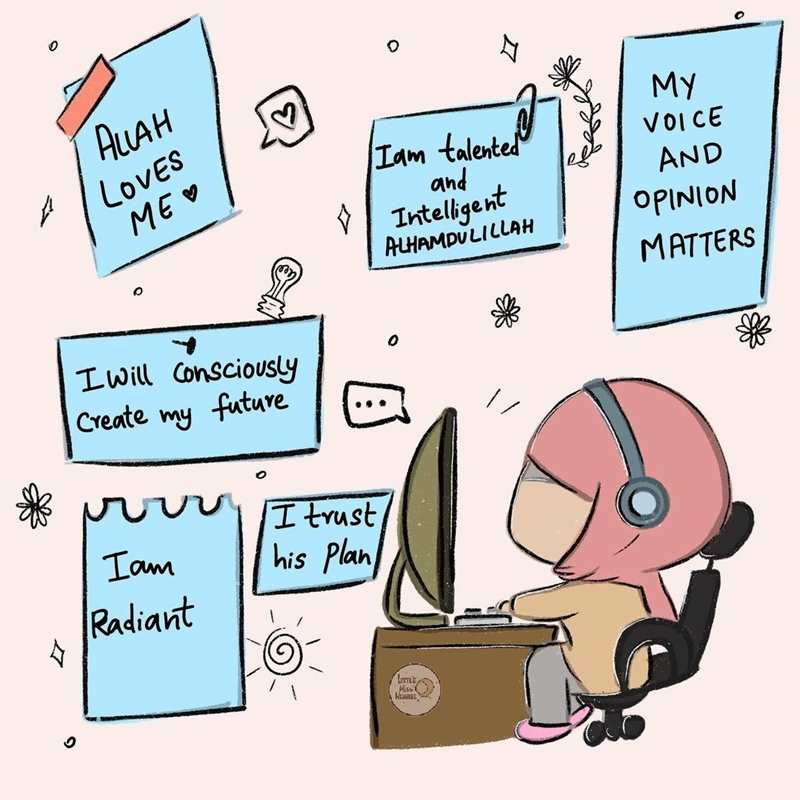 ALLAH
LOVES
ME
I am talented
and
Intelligent
ALHAMDULILLAH
MY
VOICE
AND
OPINION
MATTERS
I Will Consciously
Create my future
I am
Radiant
I trust
his Plan